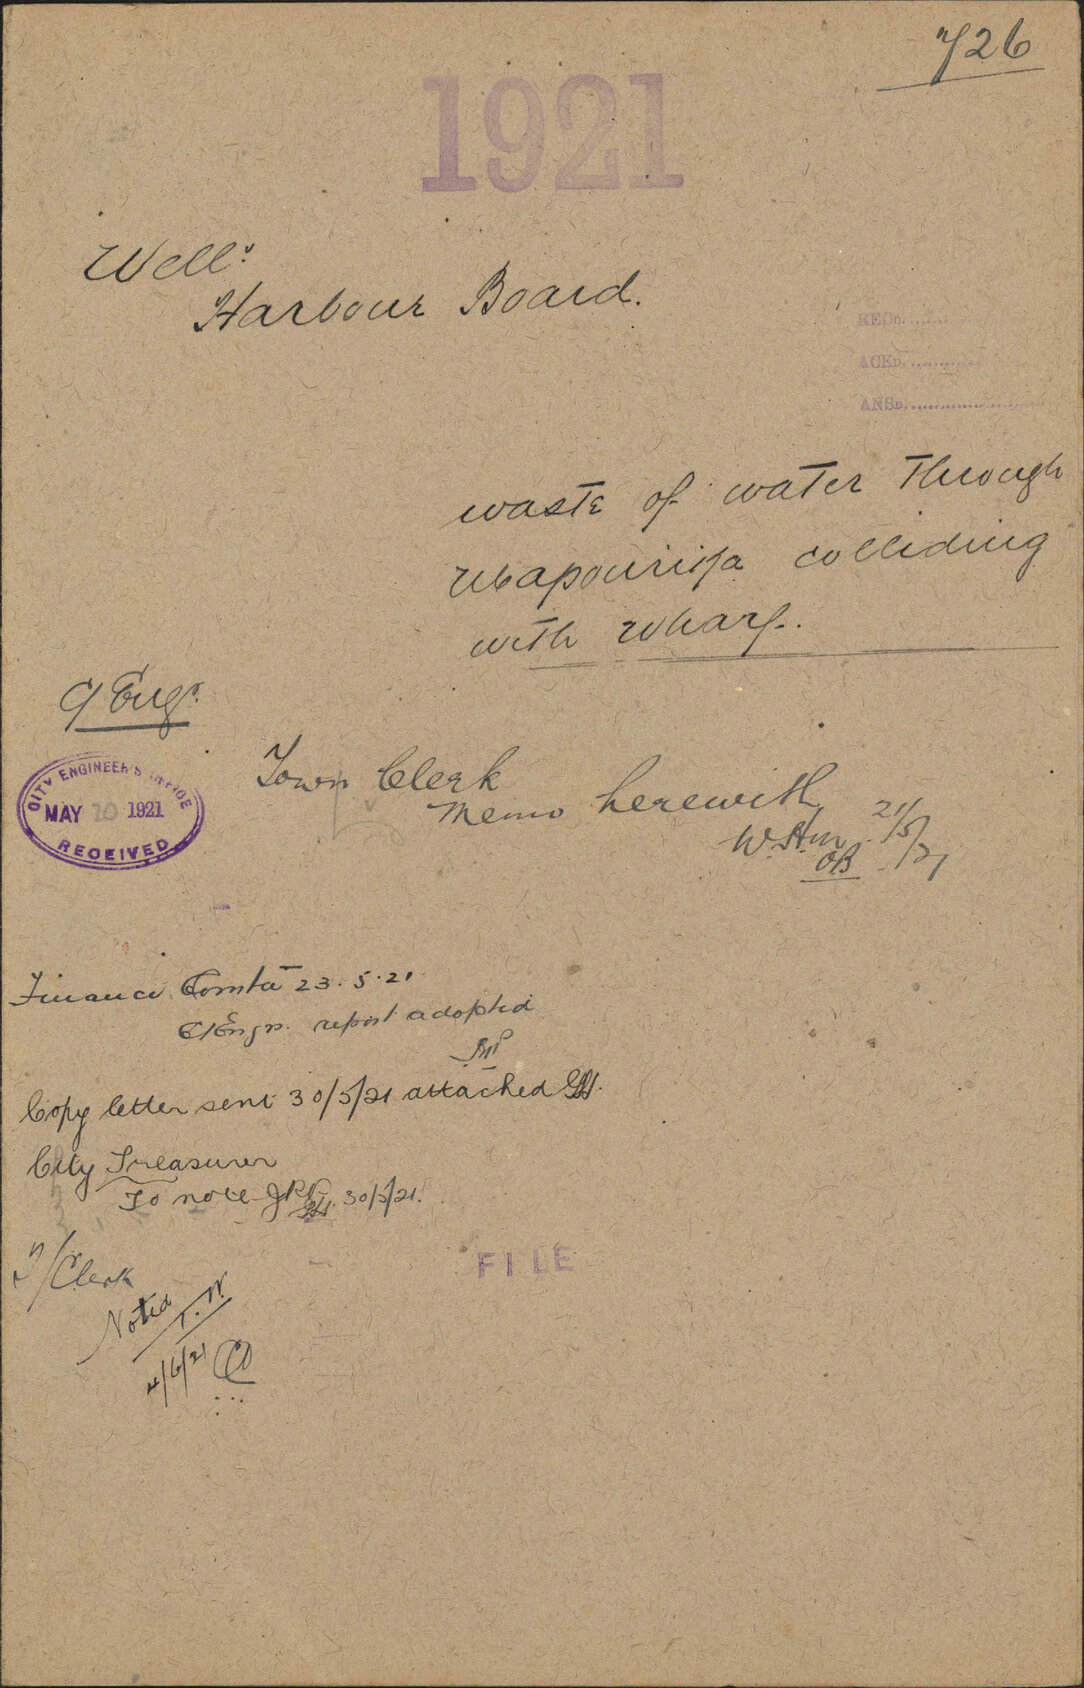 726
1921
Well:
Harbour Board.
RECD.
ACKD.
ANSD.
waste of water through
colliding
with wharf.
C/Engr.
CITY ENGINEER'S OFFICE
MAY 20 1921
RECEIVED
Town Clerk
Memo herewith
21/5/21
Finance Comtee 23.5.21
C/Engrs. report adopted
Copy letter sent 30/5/21 attached
City Treasurer
To note 30/5/21.
T/Clerk
Noted
4/6/21
FILE